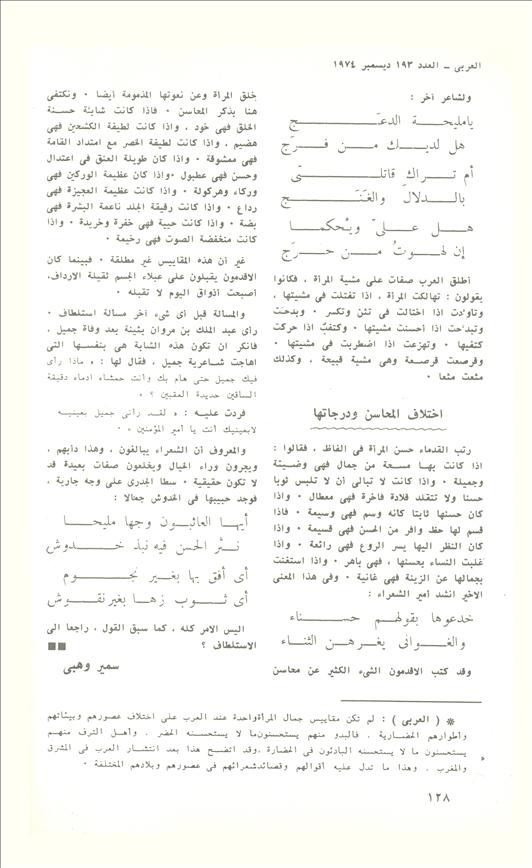 العربى – العدد ١٩٣ ديسمبر ١٩٧٤
ولشاعر آخر :
يامليحة الدعج
هل لديك من فرج
أم تراك قاتلتى
بالدلال والغنج
هل على ويحكما
إن لهوت من حرج
أطلق العرب صفات على مشية المرأة ، فكانوا
يقولون : تهالكت المرأة ، اذا تفتلت فى مشيتها ،
وتاودت اذا اختالت فى تثن وتكسر ٠ وبدحت
وتبدحت اذا أحسنت مشيتها ٠ وكتفت اذا حركت
كتفيها ٠ وتهزعت اذا اضطربت فى مشيتها ٠
وقرصعت قرصعة وهى مشية قبيحة ، وكذلك
مثعت مثعا ٠
اختلاف المحاسن ودرجاتها
رتب القدماء حسن المرأة فى الفاظ ، فقالوا :
اذا كانت بها مسحة من جمال فهى وضيئة
وجميلة ٠ واذا كانت لا تبالى أن لا تلبس ثوبا
حسنا ولا تتقلد قلادة فاخرة فهى معطال ٠ واذا
كان حسنها ثابتا كانه وسم فهى وسيمة ٠ فاذا
قسم لها حظ وافر من الحسن فهى قسيمة ٠ واذا
كان النظر اليها يسر الروع فهى رائعة ٠ واذا
غلبت النساء بحسنها ، فهى باهر ٠ واذا استغنت
بجمالها عن الزينة فهى غانية ٠ وفى هذا المعنى
الاخير انشد أمير الشعراء :
خدعوها بقولهم حسناء
والغوانى يغرهن الثناء
وقد كتب الاقدمون الشىء الكثير عن محاسن
خلق المرأة وعن نعوتها المذمومة أيضا ٠ ونكتفى
هنا بذكر المحاسن ٠ فاذا كانت شابئة حسنة
الخلق فهى خود ، واذا كانت لطيفة الكشحين فهى
هضيم ، واذا كانت لطيفة الخصر مع امتداد القامة
فهى ممشوقة ٠ واذا كان طويلة العنق فى اعتدال
وحسن فهى عطبول ٠ واذا كان عظيمة الوركين فهى
وركاء وهركولة ٠ واذا كانت عظيمة العجيزة فهى
رداع ٠ واذا كانت رقيقة الجلد ناعمة البشرة فهى
بضة ٠ واذا كانت حيية فهى خفرة وخريدة ٠ واذا
كانت منخفضة الصوت فهى رخيمة ٠
غير أن هذه المقاييس غير مطلقة ٠ فبينما كان
الاقدمون يقبلون على عبلاء الجسم ثقيلة الارداف،
أصبحت أذواق اليوم لا تقبله ٠
والمسالة قبل أى شىء آخر مسالة استلطاف ٠
رأى عبد الملك بن مروان بثينة بعد وفاة جميل ،
فانكر ان تكون هذه الشابة هى بنفسها التى
اهاجت شاعرية جميل ، فقال لها : « ماذا رأى
فيك جميل حتى هام بك وأنت حمشاء ادماء دقيقة
الساقين حديدة العقبين ؟ »
فردت عليه : « لقد رآنى جميل بعينيه
لابعينيك أنت يا أمير المؤمنين » ٠
والمعروف أن الشعراء يبالغون ، وهذا دأبهم ،
ويجرون وراء الخيال ويخلعون صفات بعيدة قد
لا تكون حقيقية ٠ سطا الجدرى على وجه جارية ،
فوجد حبيبها فى الخدوش جمالا :
أيها العائبون وجها مليحا
نثر الحسن فيه نبذ خدوش
أى أفق بها بغير نجوم
أى ثوب زها بغير نقوش
اليس الامر كله ، كما سبق القول ، راجعا الى
الاستلطاف ؟
سمير وهبى
* ( العربى ) : لم تكن مقاييس جمال المرأة واحدة عند العرب على اختلاف عصورهم وبيئاتهم
وأطوارهم الحضارية ٠ فالبدو منهم يستحسنون ما لا يستحسنه الحضر ٠ وأهل الترف منهم
يستحسنون ما لا يستحسنه البادئون فى الحضارة ٠ وقد اتضح هذا بعد انتشار العرب فى المشرق
والمغرب ٠ وهذا ما تدل عليه أقوالهم وقصائد شعرائهم فى عصورهم وبلادهم المختلفة ٠
١٢٨